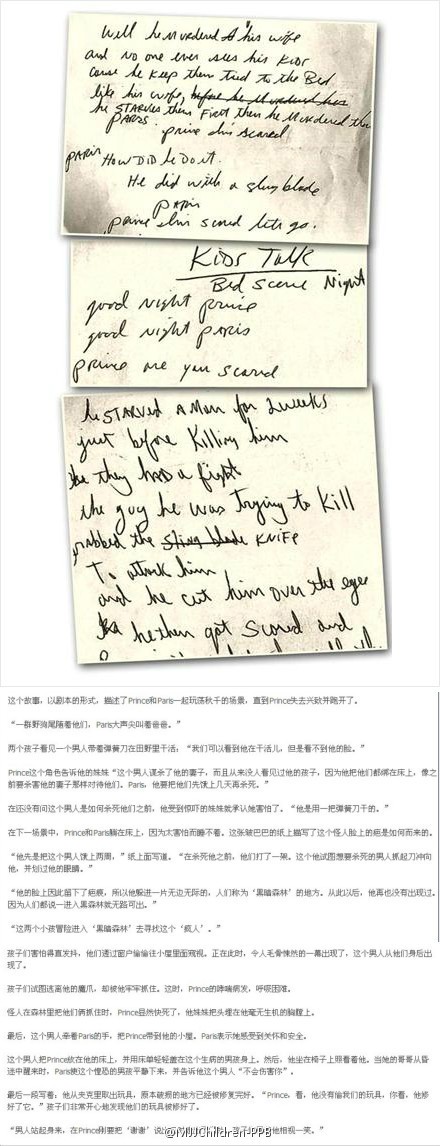 Well he murdered his wife
and no one ever sees his KIDS
cause he keep them tied to the Bed
like his wife, before he Murdered her
he STARVES them First then he Murdered the
PARIS. prince I'm scared
PARIS HOW DID he Do it.
He did with a sling blade
PARIS
prince I'm scared lets go.
KIDS Talk
Bed Scene Night
good night prince
good night PARIS
prince are you scared
he STARVED A Man for 2 weeks
just before Killing him
they HAD a fight
the guy he was trying to kill
grabbed the sling blade KNIFE
To attack him
and he cut him over the eyes
he then got scared and
这个故事，以剧本的形式，描述了Prince和Paris一起玩荡秋千的场景，直到Prince失去兴致并跑开了。
“一群野狗尾随着他们，Paris大声尖叫着爸爸。”
两个孩子看见一个男人带着弹簧刀在田野里干活；“我们可以看到他在干活儿，但是看不到他的脸。”
Prince这个角色告诉他的妹妹“这个男人谋杀了他的妻子，而且从来没人看见过他的孩子，因为他把他们都绑在床上，像之
前要杀害他的妻子那样对待他们。Paris，他要把他们先饿上几天再杀死。”
在还没有问这个男人是如何杀死他们之前，他受到惊吓的妹妹就承认她害怕了。“他是用一把弹簧刀干的。”
在下一场景中，Prince和Paris躺在床上，因为太害怕而睡不着。这张皱巴巴的纸上描写了这个怪人脸上的疤是如何而来的。
“他先是把这个男人饿上两周，”纸上面写道。“在杀死他之前，他们打了一架。这个他试图想要杀死的男人抓起刀冲向
他，并划过他的眼睛。”
“他的脸上因此留下了疤痕，所以他躲进一片无边无际的，人们称为‘黑暗森林’的地方。从此以后，他再也没有出现过。
因为人们都说一进入黑森林就无路可出。”
“这两个小孩冒险进入‘黑暗森林’去寻找这个‘疯人’。”
孩子们害怕得直发抖，他们透过窗户偷偷往小屋里面窥视。正在此时，令人毛骨悚然的一幕出现了，这个男人从他们身后出
现了。
孩子们试图逃离他的魔爪，却被他牢牢抓住。这时，Prince的哮喘病发，呼吸困难。
怪人在森林里把他们俩抓住时，Prince显然快死了，他妹妹把头埋在他毫无生机的胸膛上。
最后，这个男人牵着Paris的手，把Prince带到他的小屋。Paris表示她感受到关怀和安全。
这个男人把Prince放在他的床上，并用床单轻轻盖在这个生病的男孩身上。然后，他坐在椅子上照看着他。当她的哥哥从昏
迷中醒来时，Paris使这个惶恐的男孩平静下来，并告诉他这个男人“不会伤害你”。
最后一段写着，他从夹克里取出玩具，原本破损的地方已经被修复完好。“Prince，看，他没有偷我们的玩具，你看，他修
好了它。”孩子们非常开心地发现他们的玩具被修好了。
“男人站起身来，在Prince刚要把‘谢谢’说出
@MJJChildren-PPB
他相视一笑。”